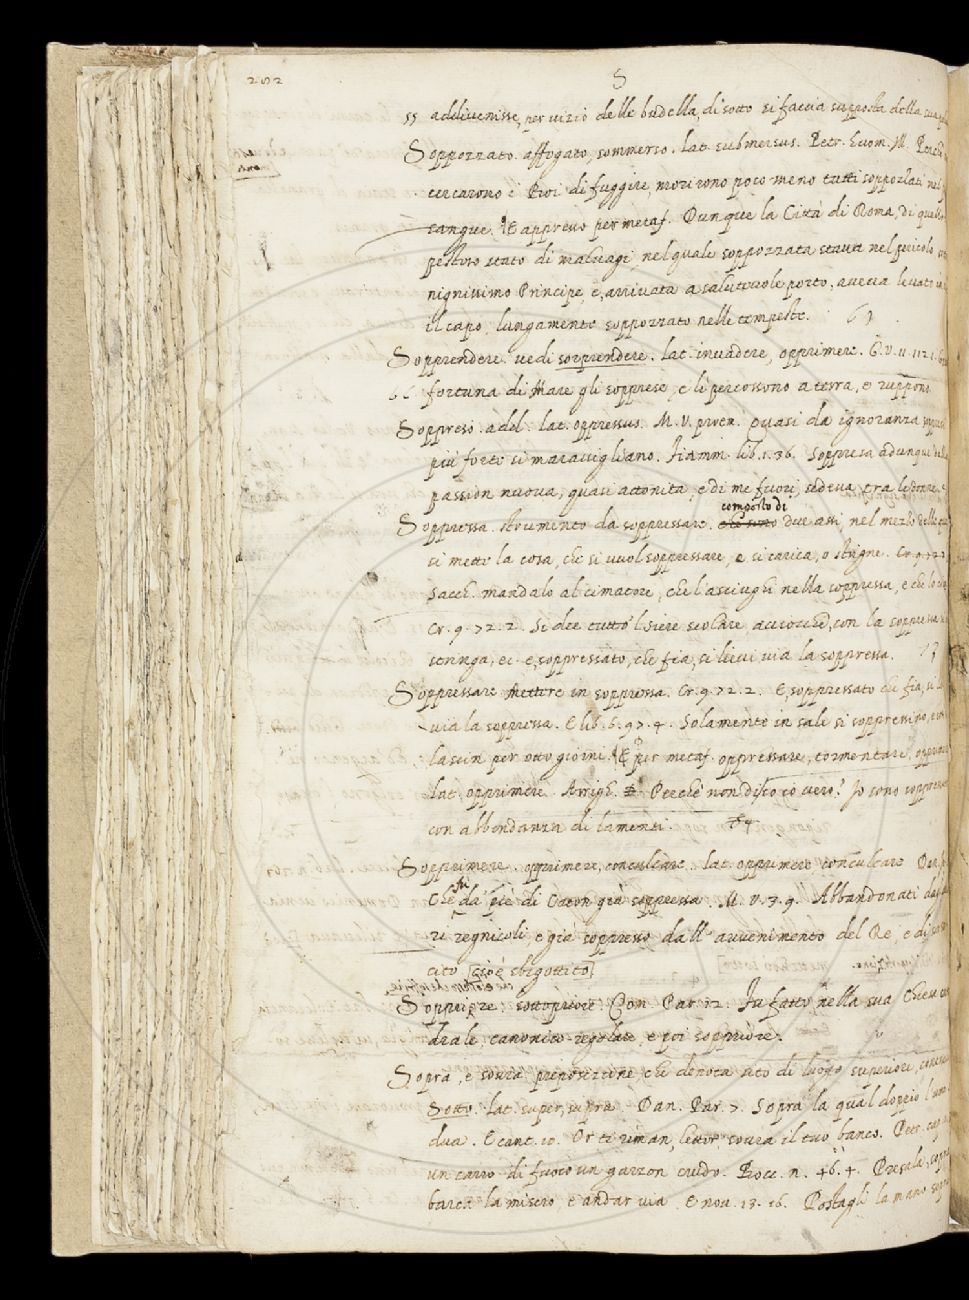 202
S
55 addivenisse, per vizio delle budella, di sotto si faccia supposta della
Soppozzato. affogato, sommerso. lat. submersus. Petr. huom. ill.
cercarono i Poi di fuggire, morirono poco meno tutti soppozzati nel
sangue. E appresso per metaf. Dunque la Città di Roma, di
stato di malvagi, nel quale soppozzata stava nel pericolo
nignissimo Principe, è, arrivata a salutevole porto, aveva levato
il capo, lungamente soppozzato nelle tempeste.
Sopprendere. vedi sorprendere. lat. invadere, opprimere. G. V. 11. 112. 1.
fortuna di Mare gli sopprese, e li percossono a terra, e ruppono
Soppreso. add. lat. oppressus. M. V. proem. quasi da ignoranza
più forte si maravigliano. Fiamm. lib. 1. 36. Soppresa adunque
passion nuova, quasi attonita, e di me fuori, sedeva tra le donne
composto di
Soppressa. strumento da soppressare. due assi, nel mezzo delle
si mette la cosa, che si vuol soppressare, e si carica, o strigne. Cr. 9
Sacch. mandalo al cimatore, che l'asciughi nella soppressa, e che lo
Cr. 9. 72. 2. Si dee tutto 'l siere scolare acciocchè, con la soppressa
stringa, ec. e, soppressato, che fia, si lievi via la soppressa.
Soppressare. Mettere in soppressa. Cr. 9. 72. 2. E, soppressato che fia, si
via la soppressa. E lib. 6. 97. 4. Solamente in sale si soppressino, e
lascin per otto giorni. E per metaf. oppressare, tormentare,
lat. opprimere. Arrigh. Perchè non dico io vero? Io sono
con abbondanza di lamenti. 54
Sopprimere. opprimere, conculcare. lat. opprimere conculcare. Dan.
fu
Che da' piè di Caton già soppressa. M. V. 3. 9. Abbandonati
ri regnicoli e già soppresso dall'avvenimento del Re, e di
cito [cioè sbigottito]
Soppriore. sottopriore. Com. Par. 12. Fu fatto nella sua Chiesa
drale, canonico regolare, e poi soppriore.
Sopra, e sovra preposizione, che denota sito di luogo superiore,
Sotto. lat. super, supra. Dan. Par. 7. Sopra la qual doppio
dua. E cant. 10. Or ti riman, lettor, sovra il tuo banco. Petr. cap.
un carro di fuoco un garzon crudo. Bocc. n. 46. 4. Presala,
barca la misero, e andar via. E nov. 13. 16. Postagli la mano